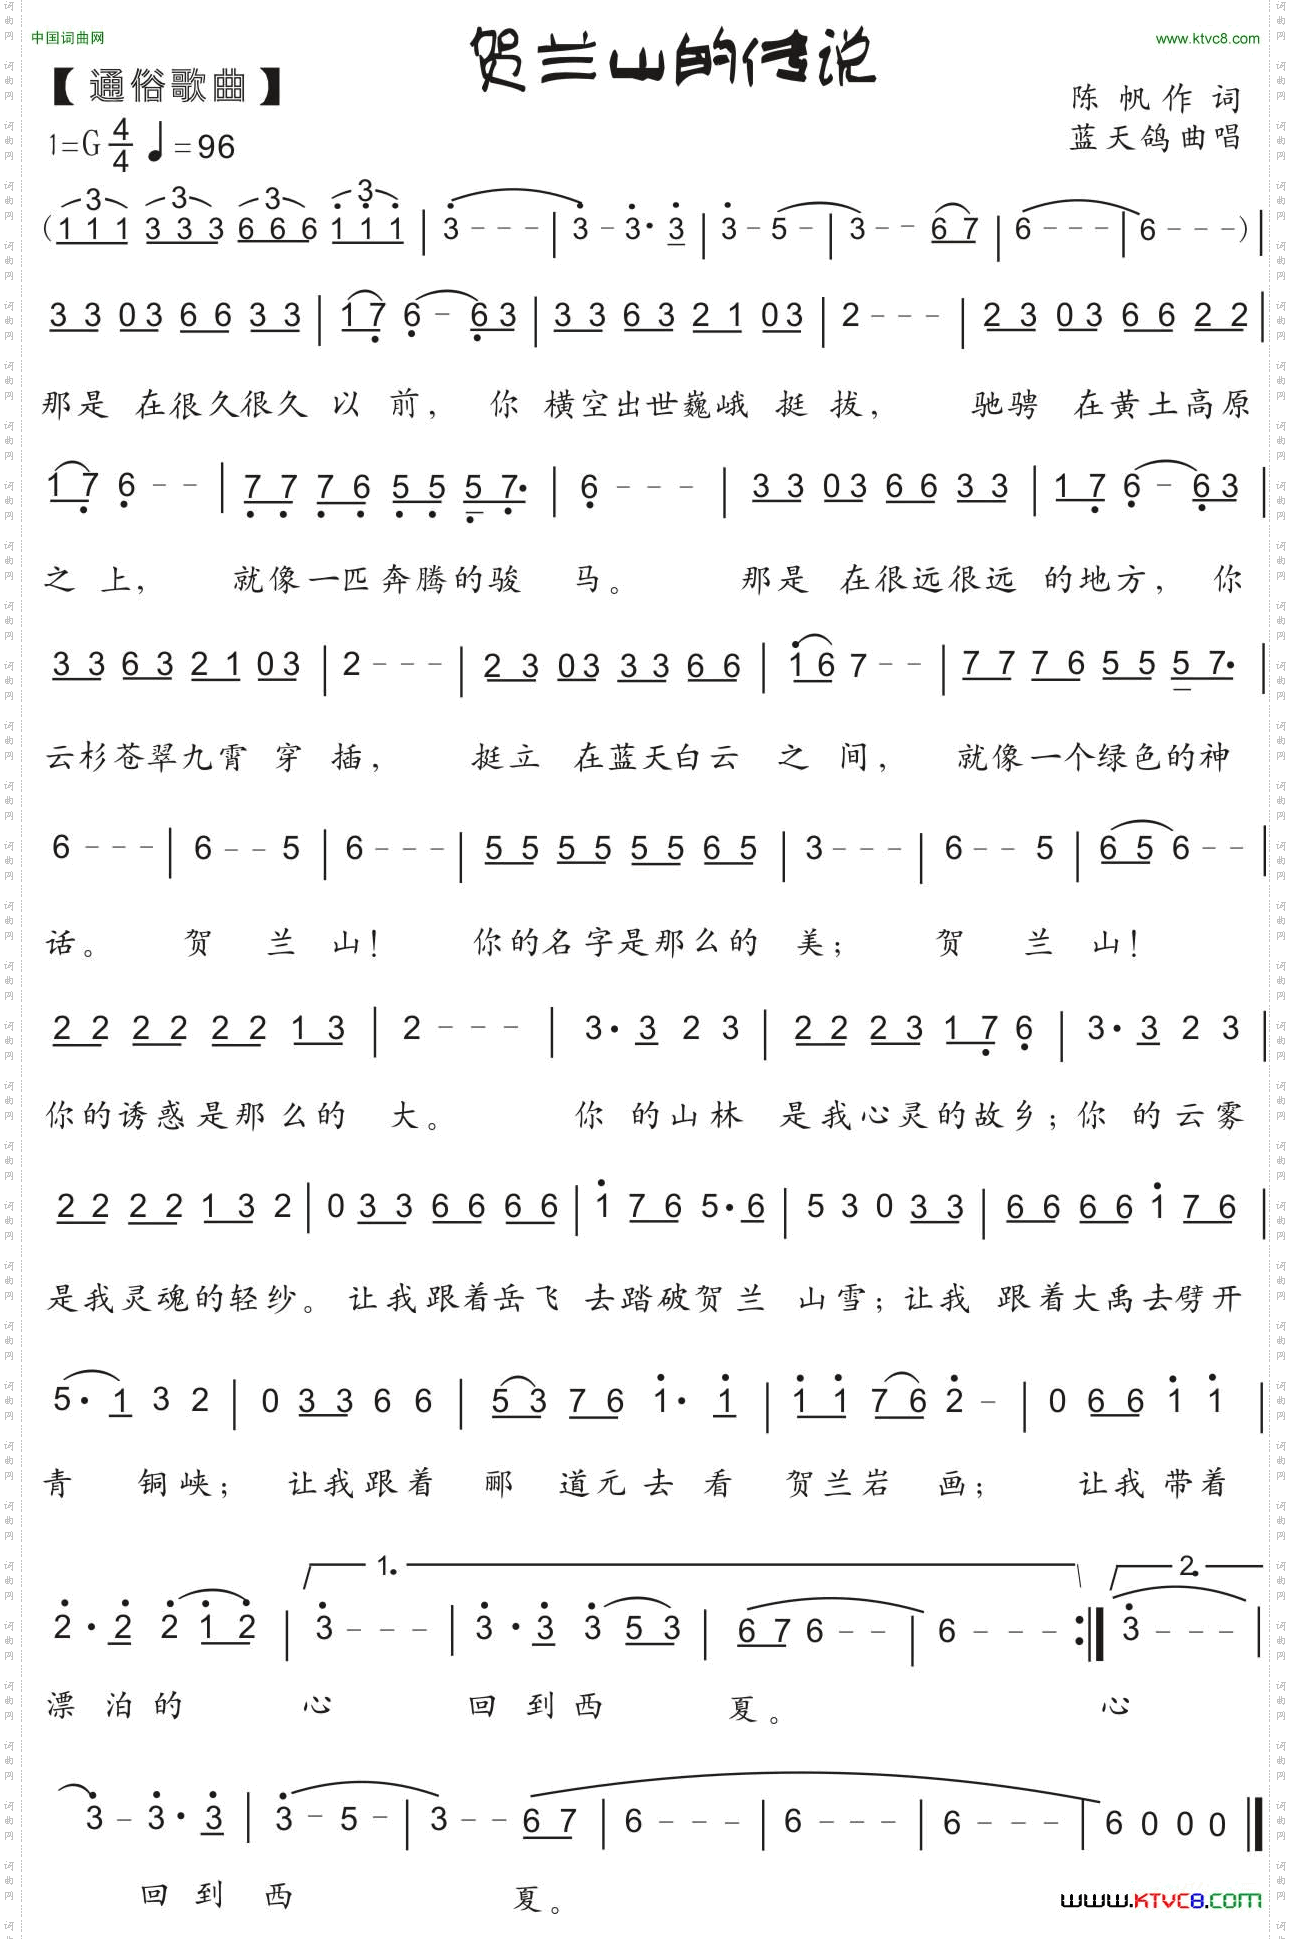 中国词曲网
www.ktvc8.com
贺兰山的传说
【通俗歌曲】
陈帆作词
蓝天鸽曲唱
1=G 4/4 ♩=96
(1 1 1 3 3 3 6 6 6 1 1 1 | 3 - - - | 3 - 3· 3 | 3 - 5 - | 3 - - 6 7 | 6 - - - | 6 - - -) |
3 3 0 3 6 6 3 3 | 1 7 6 - 6 3 | 3 3 6 3 2 1 0 3 | 2 - - - | 2 3 0 3 6 6 2 2 |
那是 在很久很久 以 前， 你 横空出世巍峨 挺 拔， 驰骋 在黄土高原
1 7 6 - - | 7 7 7 6 5 5 5 7· | 6 - - - | 3 3 0 3 6 6 3 3 | 1 7 6 - 6 3 |
之 上， 就像一匹奔腾的骏 马。 那是 在很远很远 的地方， 你
3 3 6 3 2 1 0 3 | 2 - - - | 2 3 0 3 3 3 6 6 | 1 6 7 - - | 7 7 7 6 5 5 5 7· |
云杉苍翠九霄 穿 插， 挺立 在蓝天白云 之 间， 就像一个绿色的神
6 - - - | 6 - - 5 | 6 - - - | 5 5 5 5 5 5 6 5 | 3 - - - | 6 - - 5 | 6 5 6 - - |
话。 贺 兰 山！ 你的名字是那么的 美； 贺 兰 山！
2 2 2 2 2 2 1 3 | 2 - - - | 3· 3 2 3 | 2 2 2 3 1 7 6 | 3· 3 2 3 |
你的诱惑是那么的 大。 你 的山林 是我心灵的故乡；你 的云雾
2 2 2 2 1 3 2 | 0 3 3 6 6 6 6 | 1 7 6 5· 6 | 5 3 0 3 3 | 6 6 6 6 1 7 6 |
是我灵魂的轻纱。 让我跟着岳飞 去踏破贺兰 山雪；让我 跟着大禹去劈开
5· 1 3 2 | 0 3 3 6 6 | 5 3 7 6 1· 1 | 1 1 7 6 2 - | 0 6 6 1 1 |
青 铜峡； 让我跟着 郦 道元去 看 贺兰岩 画； 让我 带着
1. 2.
2· 2 2 1 2 | 3 - - - | 3· 3 3 5 3 | 6 7 6 - - | 6 - - - :| 3 - - - |
漂 泊的 心 回到西 夏。 心
3 - 3· 3 | 3 - 5 - | 3 - - 6 7 | 6 - - - | 6 - - - | 6 - - - | 6 0 0 0 ‖
回到 西 夏。
www.KTVC8.COM